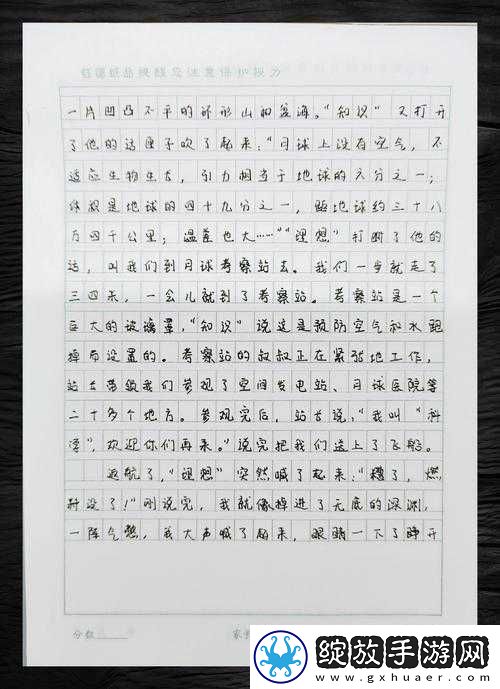 红谱纸品提醒您注意保护视力
一片凹凸不平的环形山和苍海。“知识”又打开
了他的话匣子吹了起来:“月球上没有空气,不
适应生物生长,引力相当于地球的六分之一;
体积是地球的四十九分之一,距地球约三十八
万四千公里;温差也大……”“理想”打断了他的
话,叫我们到月球考察站去。我们一步就走了
三四米,一会儿就到了考察站。考察站是一个
巨大的玻璃罩,“知识”说这是预防空气和水跑
掉而设置的。考察站的叔叔正在紧张地工作,
站长带领我们参观了空间发电站、月球医院等
二十多个地方。参观完后,站长说:“我叫“科
学”,欢迎你们再来。”说完把我们送上了飞船。
返航了,“理想”突然喊了起来:“糟了,燃
料没了!”刚说完,我就像掉进了无底的深渊,
一阵气憋,我大声喊了起来,眼睛一下子睁开
分数
家长
绽放手游网
www.gxhuaer.com